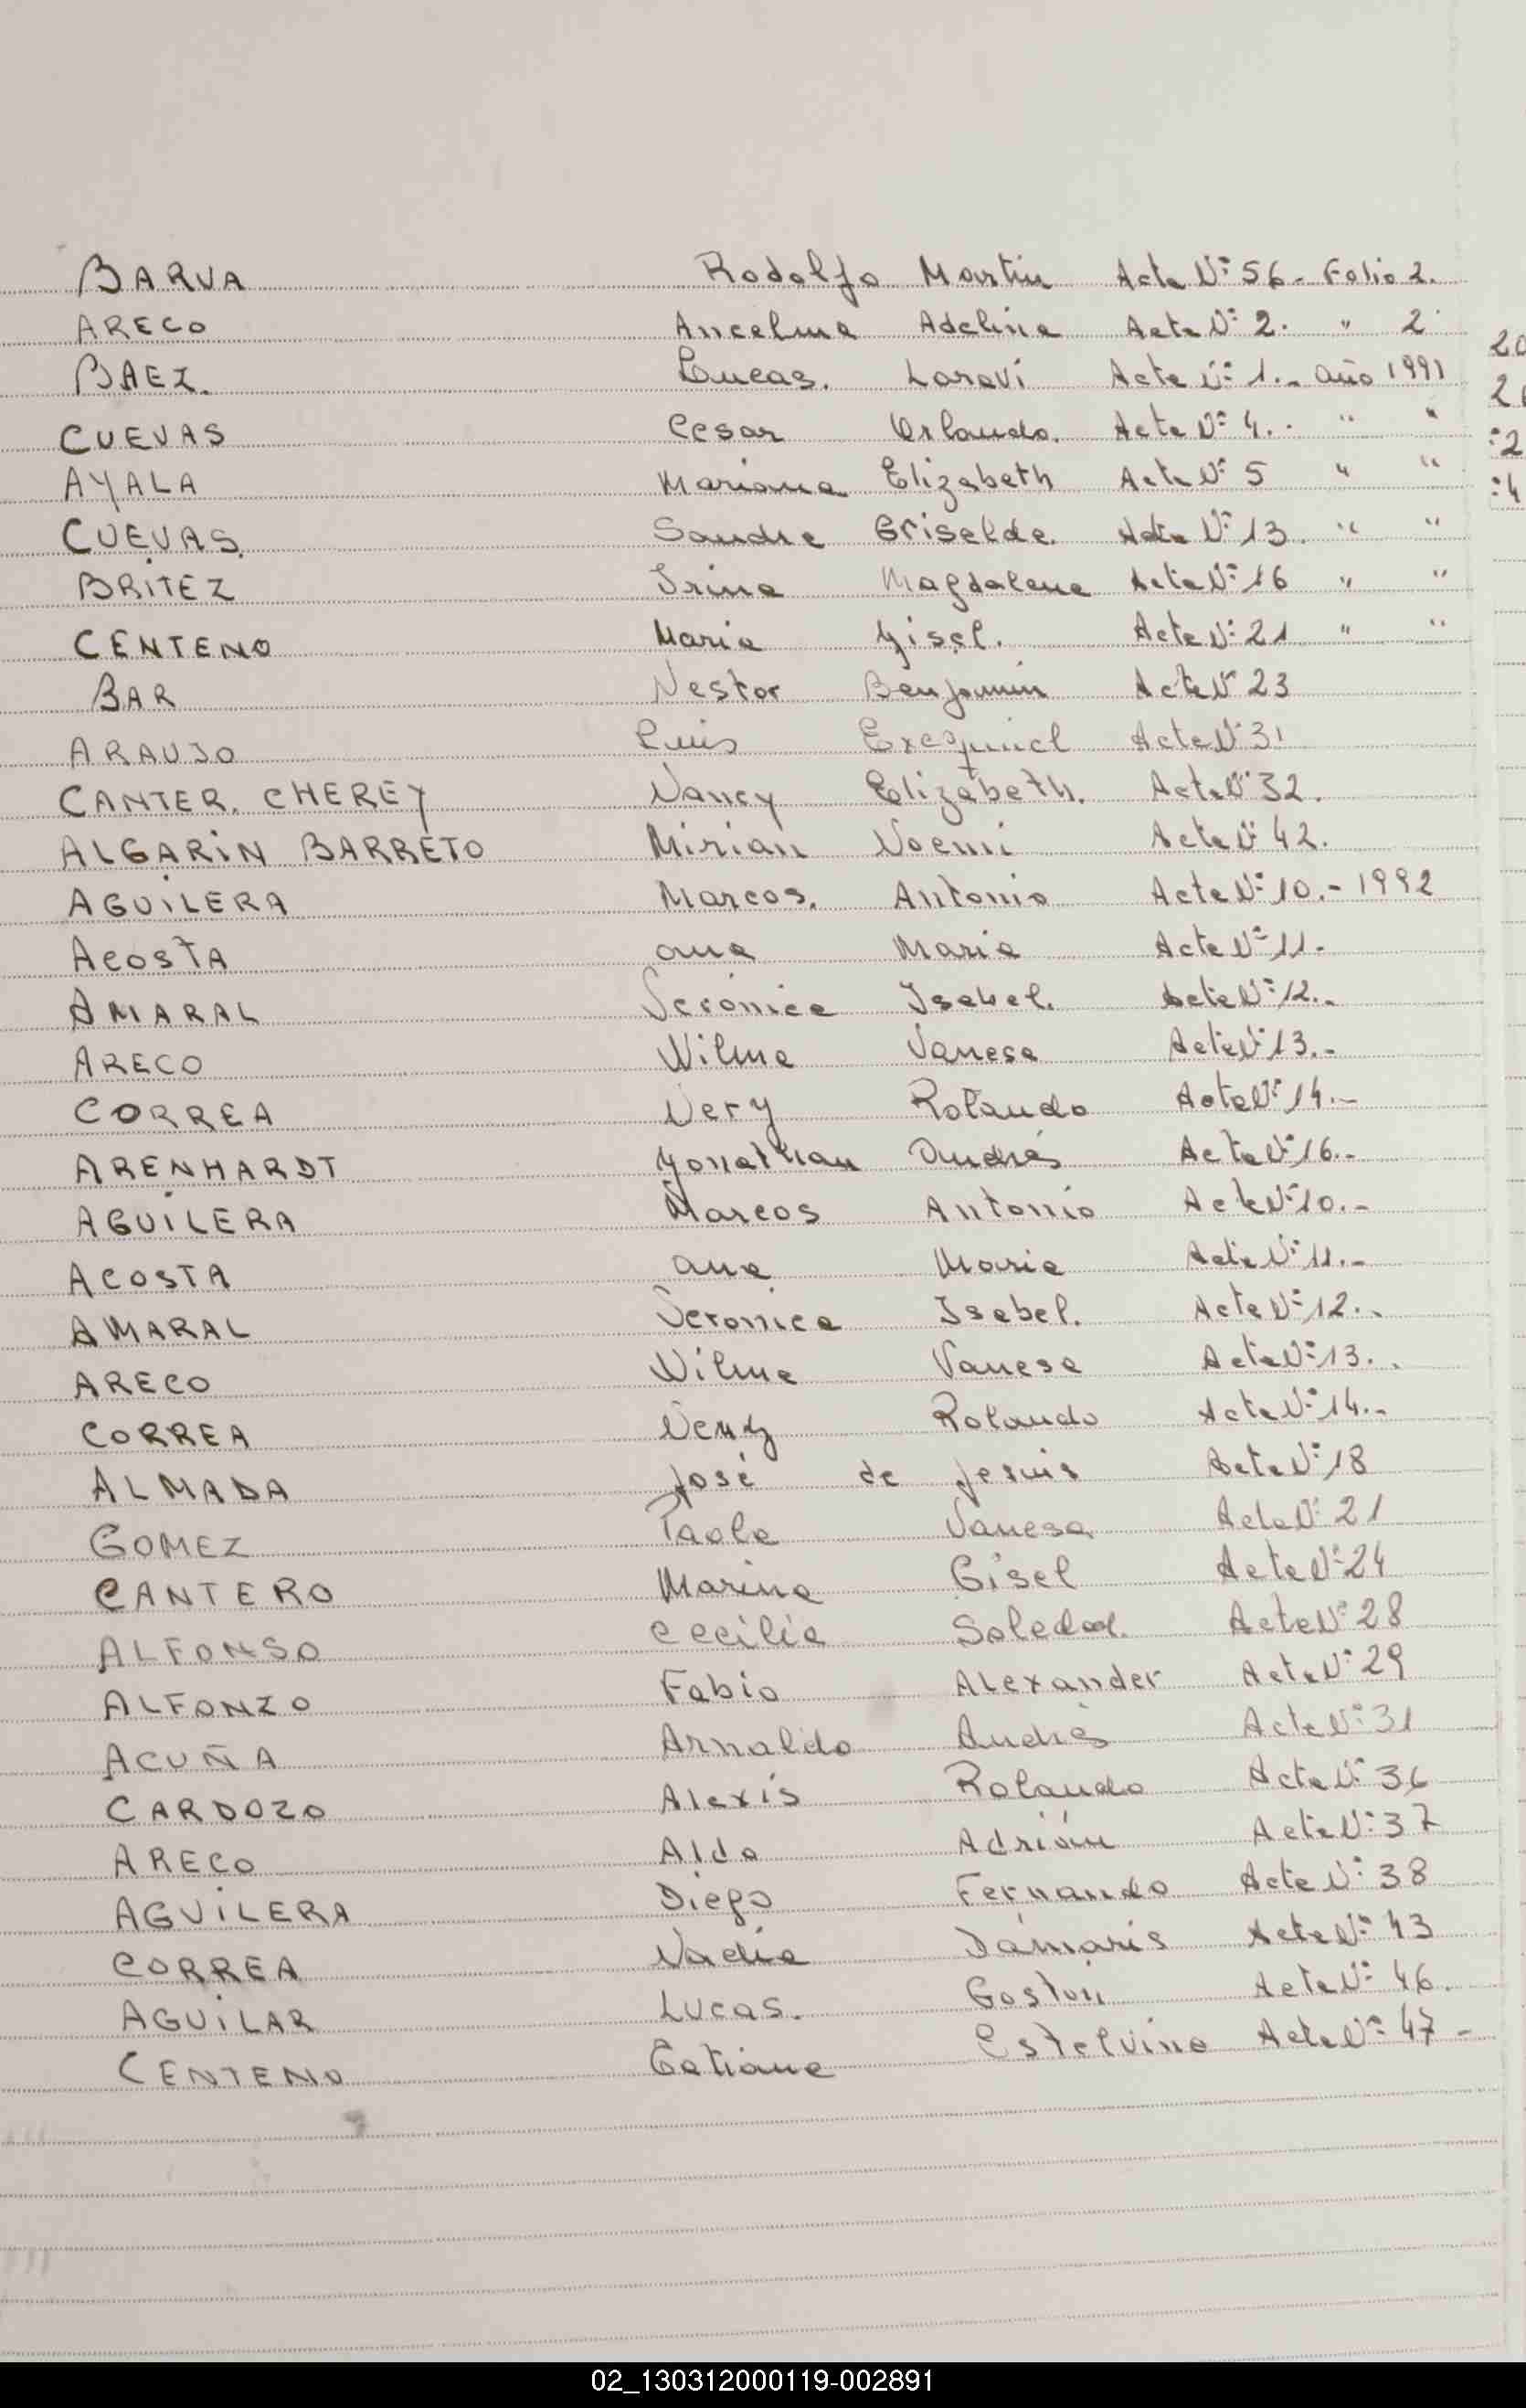 BARUA Rodolfo Martin Acta Nº 56 - Folio 2.
ARECO Ancelma Adelina Acta Nº 2. " 2
BAEZ. Lucas. Acta Nº 1.- año 1991
CUEVAS Cesar Orlando. Acta Nº 4.. " "
AYALA Mariana Elizabeth Acta Nº 5 " "
CUEVAS. Sandra Griselda. Acta Nº 13. " "
BRITEZ Irina Magdalena Acta Nº 16 " "
CENTENO Maria Gisel. Acta Nº 21 " "
BAR Nestor Benjamin Acta Nº 23
ARAUJO Luis Exequiel Acta Nº 31
CANTER. CHEREY Nancy Elizabeth. Acta Nº 32.
ALGARIN BARRETO Mirian Noemi Acta Nº 42.
AGUILERA Marcos. Antonio Acta Nº 10.- 1992
ACOSTA ana Maria Acta Nº 11-
AMARAL Veronica Isabel. Acta Nº 12..
ARECO Wilma Vanesa Acta Nº 13.-
CORREA Nery Rolando Acta Nº 14.-
ARENHARDT Yonathan Andrés Acta Nº 16.-
AGUILERA Marcos Antonio Acta Nº 10.-
ACOSTA ana Maria Acta Nº 11.-
AMARAL Veronica Isabel. Acta Nº 12..
ARECO Wilma Vanesa Acta Nº 13..
CORREA Nery Rolando Acta Nº 14..
ALMADA José de Jesus Acta Nº 18
GOMEZ Paola Vanesa Acta Nº 21
CANTERO Marina Gisel Acta Nº 24
ALFONSO Cecilia Soledad. Acta Nº 28
ALFONZO Fabio Alexander Acta Nº 29
ACUÑA Arnaldo Andrés Acta Nº 31
CARDOZO Alexis Rolando Acta Nº 36
ARECO Aldo Adrián Acta Nº 37
AGUILERA Diego Fernando Acta Nº 38
CORREA Nadia Dámaris Acta Nº 43
AGUILAR Lucas. Gastón Acta Nº 46.
CENTENO Tatiana Estelvina Acta Nº 47 -
02_130312000119-002891